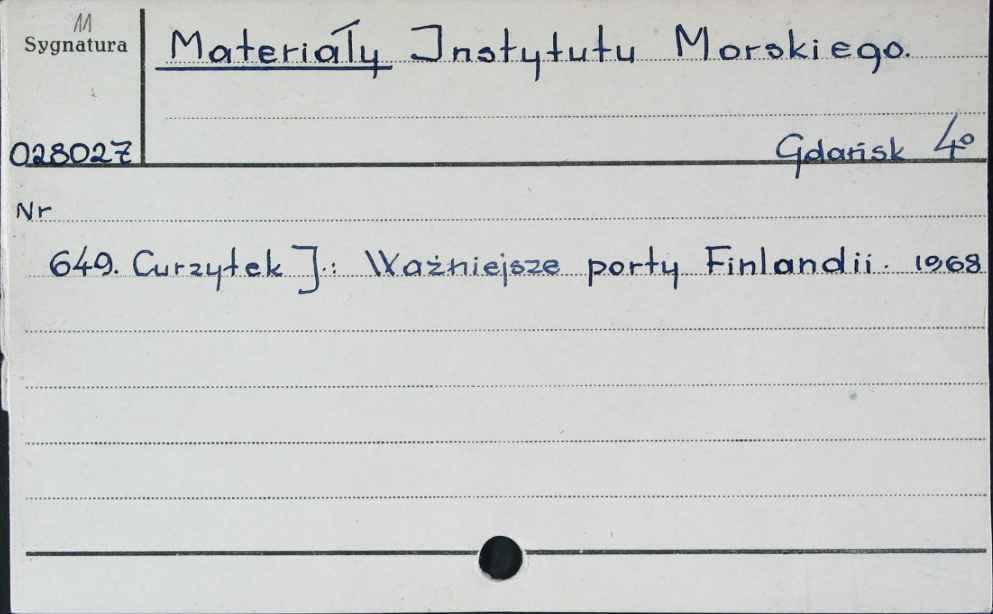 11
Sygnatura
Materiały Instytutu Morskiego.
028027
Gdańsk 4°
Nr
649. Curzytek J.: Ważniejsze porty Finlandii. 1968